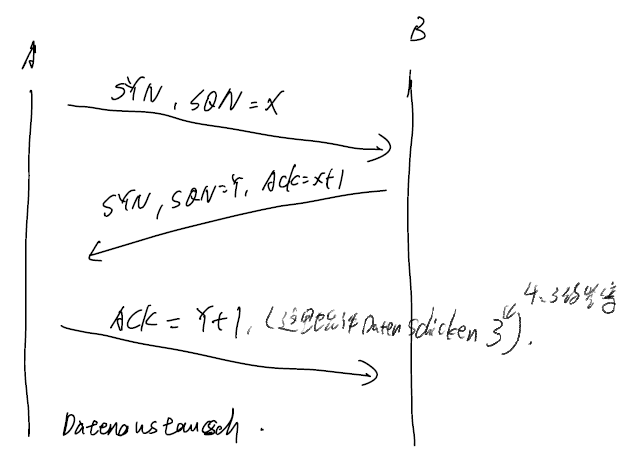 A
B
SYN, SQN = X
SYN, SQN=Y, Ack=x+1
ACK = Y+1, (这里允许Daten schicken 3).
Datenaustausch.